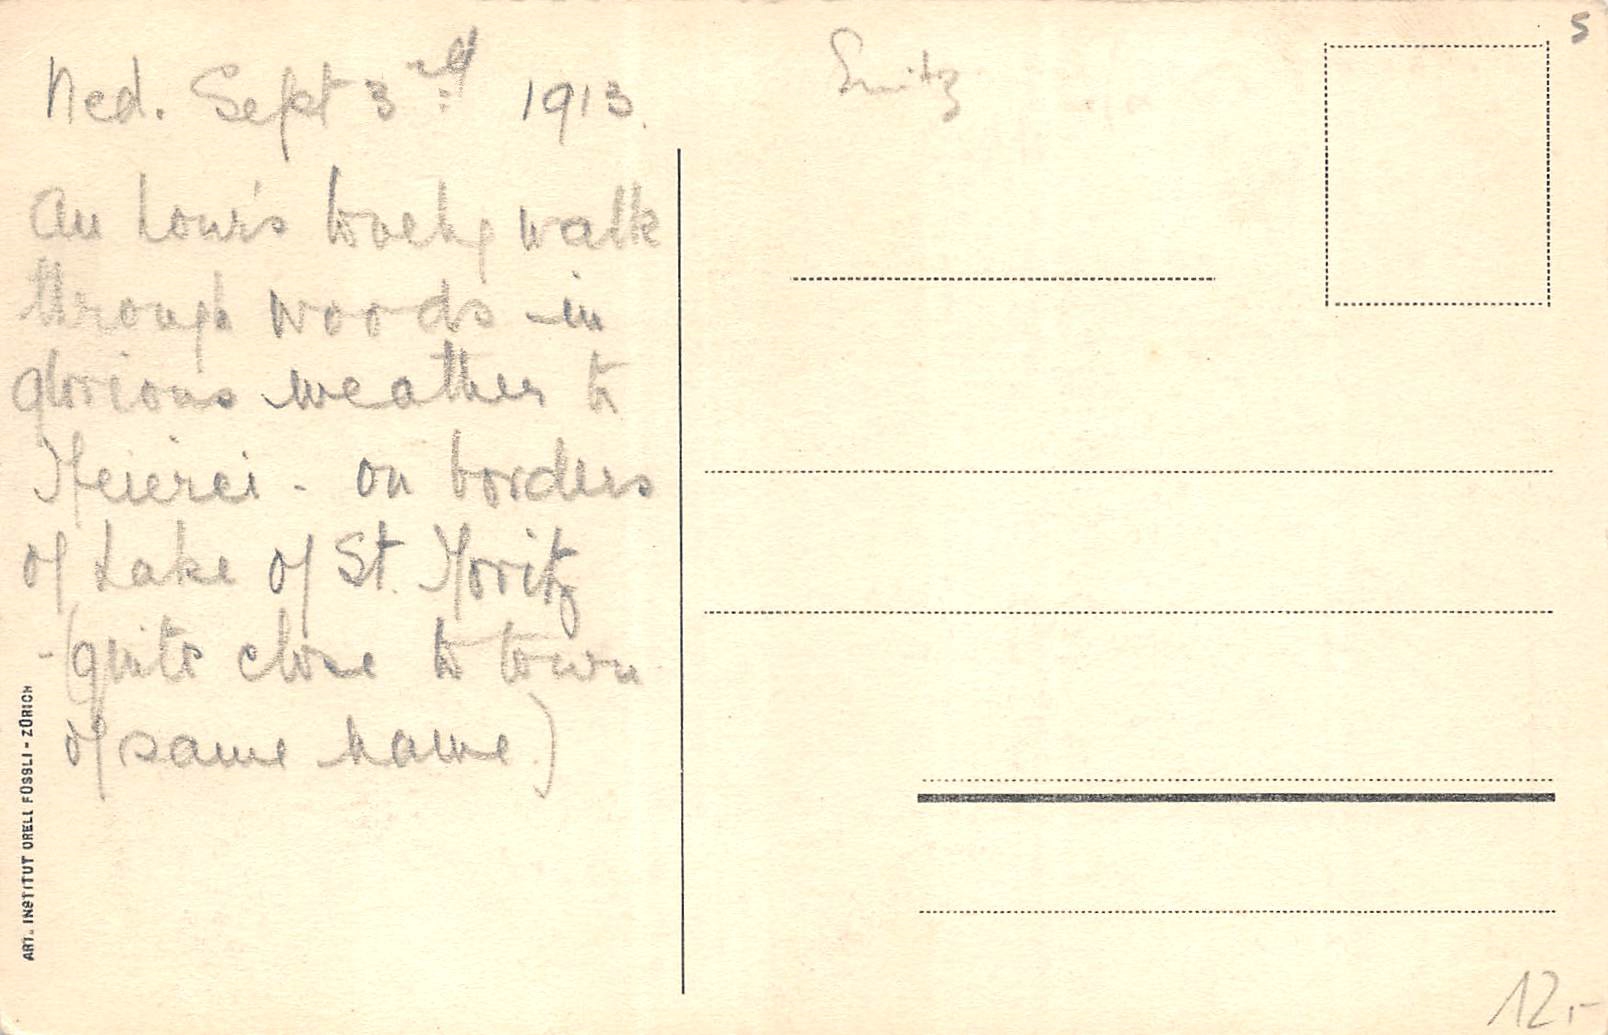 Wed. Sept 3rd 1913.
An hour's lovely walk
through woods - in
glorious weather to
Meierei - on borders
of Lake of St. Moritz
- (quite close to town
of same name.)
ART. INSTITUT ORELL FÜSSLI - ZÜRICH
5
12.-